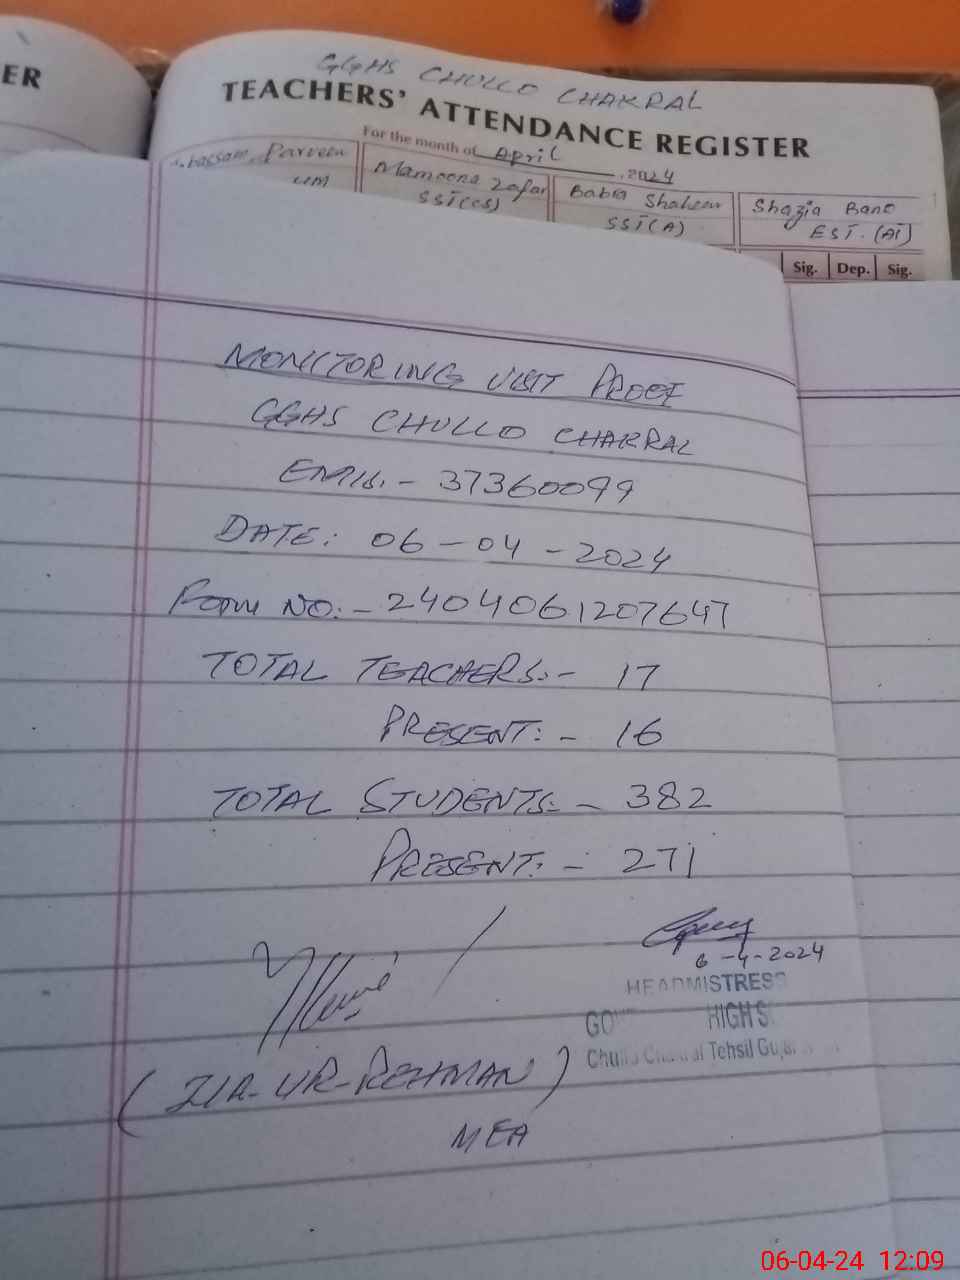 ER
GGHS CHULLO CHAKRAL
TEACHERS' ATTENDANCE REGISTER
For the month of April, 2024
Parveen Mamoona Zafar Babra Shaheen Shazia Bano
SST(CS) SST(A) EST.(AT)
Sig. Dep. Sig.
MONITORING VISIT PROOF
GGHS CHULLO CHAKRAL
EMIS:- 37360099
DATE: 06-04-2024
Form NO:- 2404061207647
TOTAL TEACHERS:- 17
PRESENT:- 16
TOTAL STUDENTS:- 382
PRESENT:- 271
6-4-2024
HEADMISTRESS
HIGH S
Chullo Chakral Tehsil Guj
(ZIA-UR-REHMAN)
MEA
06-04-24 12:09